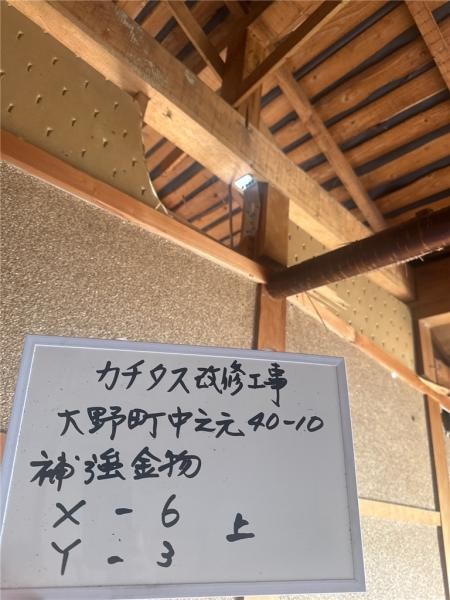 カチタス改修工事
大野町中之元40-10
補強金物
X - 6
上
Y - 3